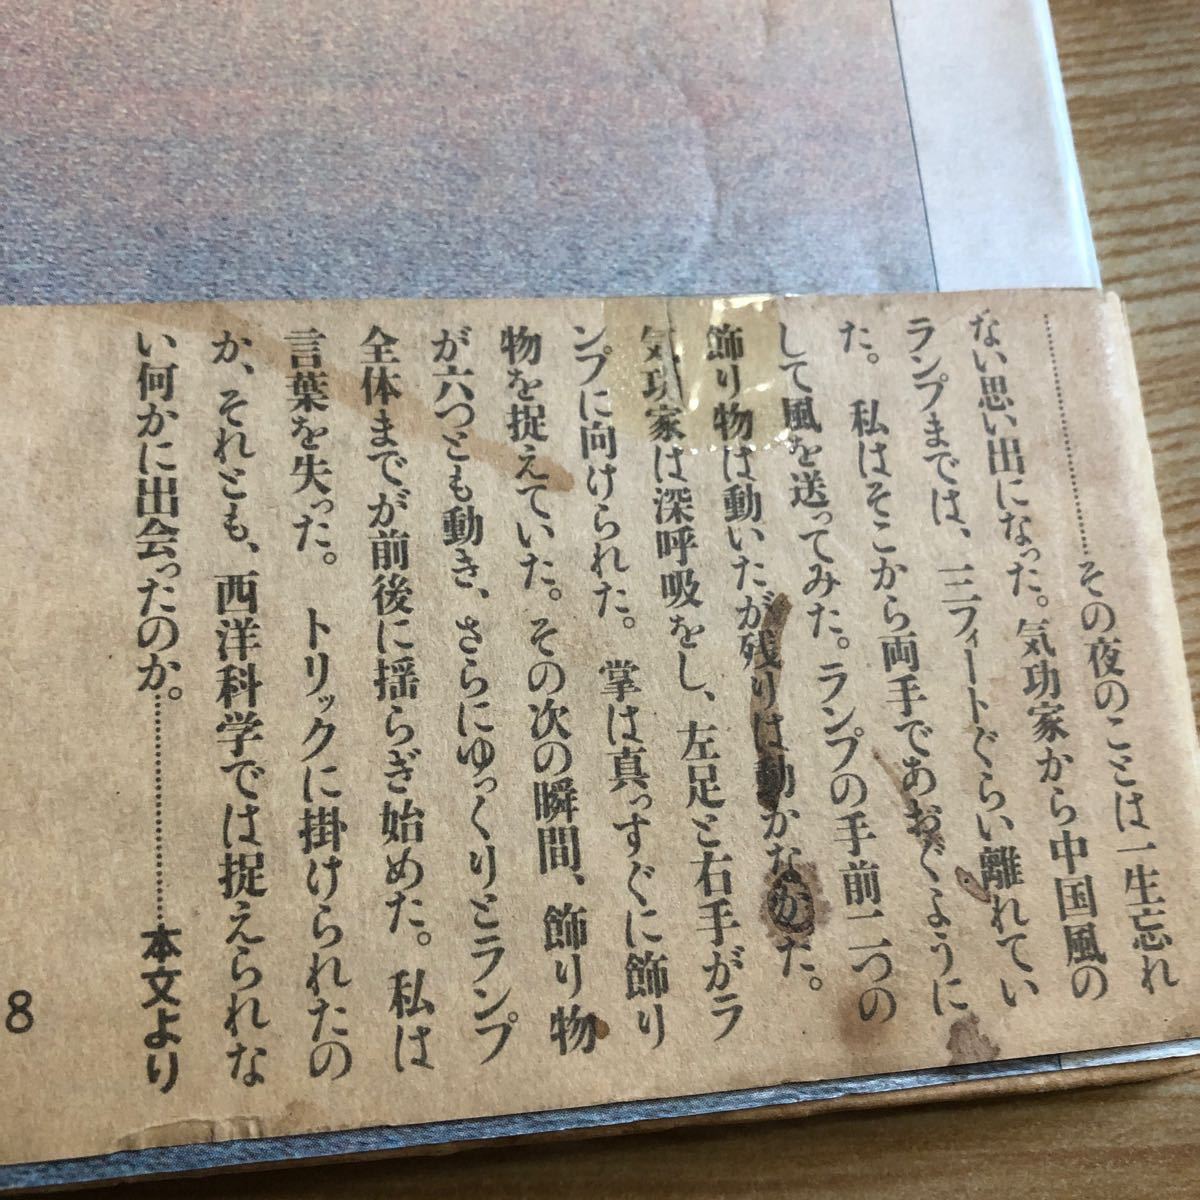 ……………………その夜のことは一生忘れ
ない思い出になった。気功家から中国風の
ランプまでは、三フィートぐらい離れてい
た。私はそこから両手であおぐように
して風を送ってみた。ランプの手前二つの
飾り物は動いたが残りは動かなかった。
気功家は深呼吸をし、左足と右手がラ
ンプに向けられた。掌は真っすぐに飾り
物を捉えていた。その次の瞬間、飾り物
が六つとも動き、さらにゆっくりとランプ
全体までが前後に揺らぎ始めた。私は
言葉を失った。トリックに掛けられたの
か、それとも、西洋科学では捉えられな
い何かに出会ったのか。……………………本文より
8